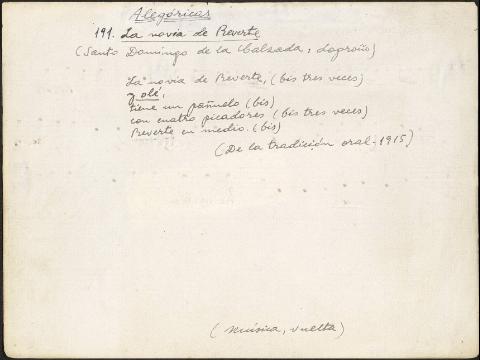 Alegóricas
191. La novia de Reverte
(Santo Domingo de la Calzada, Logroño)
La novia de Reverte, (bis tres veces)
y olé,
tiene un pañuelo (bis)
con cuatro picadores (bis tres veces)
Reverte en medio. (bis)
(De la tradición oral-1915)
(música, vuelta)